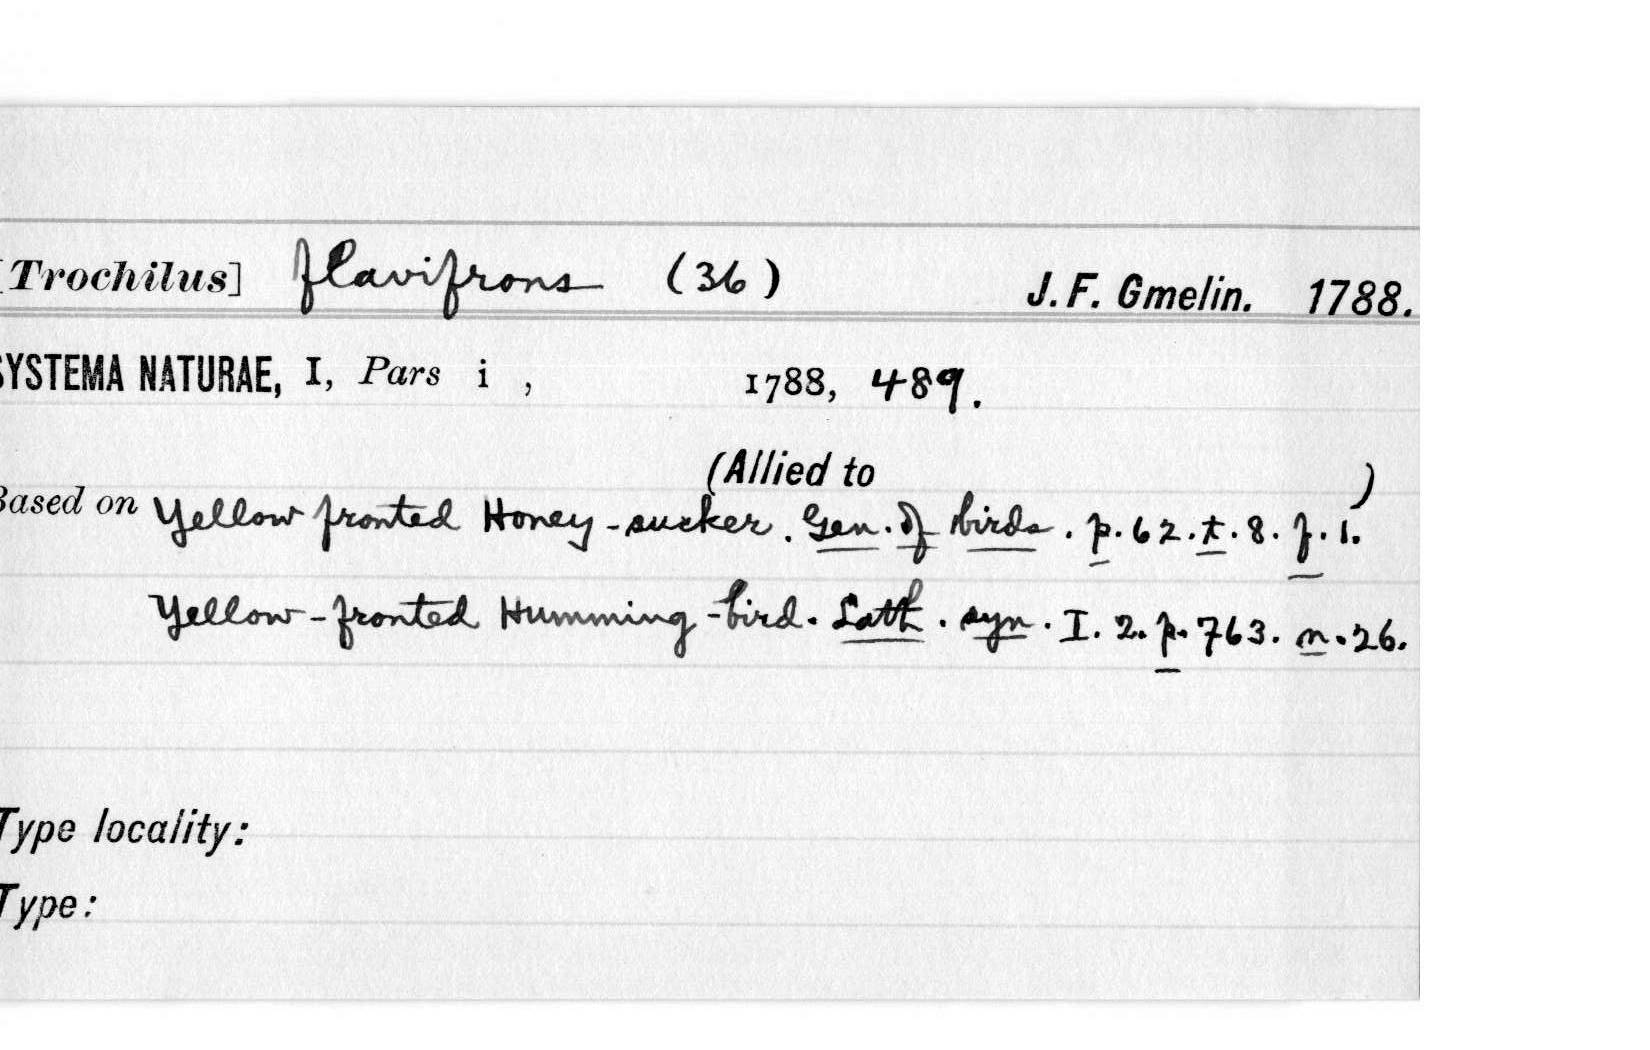 [Trochilus] flavifrons (36) J. F. Gmelin. 1788.
SYSTEMA NATURAE, I, Pars i , 1788, 489.
(Allied to )
Based on Yellow fronted Honey-sucker. Gen. of birds. p. 62. t. 8. f. 1.
Yellow-fronted Humming-bird. Lath. syn. I. 2. p. 763. n. 26.
Type locality:
Type: